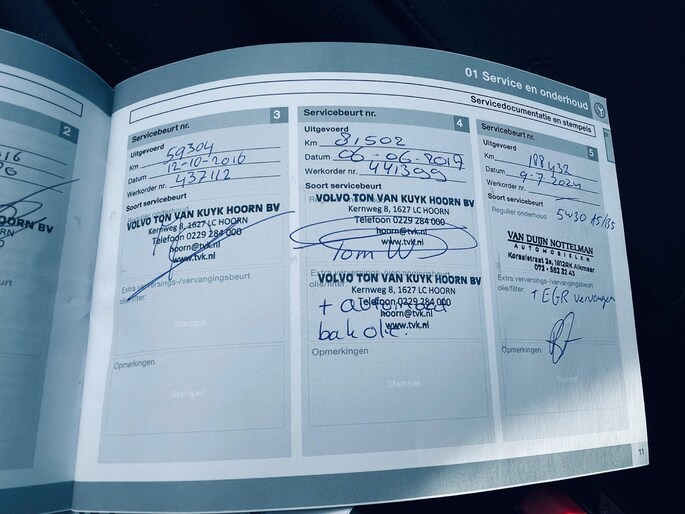 01 Service en onderhoud
Servicedocumentatie en stempels
2
16
OORN BV
Servicebeurt nr. 3
Uitgevoerd
Km 59304
Datum 12-10-2016
Werkorder nr. 437112
Soort servicebeurt
VOLVO TON VAN KUYK HOORN BV
Kernweg 8, 1627 LC HOORN
Telefoon 0229 284 000
hoorn@tvk.nl
www.tvk.nl
Extra verversings-/vervangingsbeurt
olie/filter:
Stempel
Opmerkingen
Stempel
Servicebeurt nr. 4
Uitgevoerd
Km 81502
Datum 06-06-2017
Werkorder nr. 441399
Soort servicebeurt
VOLVO TON VAN KUYK HOORN BV
Kernweg 8, 1627 LC HOORN
Telefoon 0229 284 000
hoorn@tvk.nl
www.tvk.nl
Tom W
Extra verversings-/vervangingsbeurt
olie/filter:
VOLVO TON VAN KUYK HOORN BV
Kernweg 8, 1627 LC HOORN
Telefoon 0229 284 000
hoorn@tvk.nl
www.tvk.nl
+ automaat
bak olie.
Opmerkingen
Stempel
Servicebeurt nr. 5
Uitgevoerd
Km 188432
Datum 9-7-2021
Werkorder nr.
Soort servicebeurt
Regulier onderhoud 5W30 A5/B5
VAN DUIJN NOTTELMAN
AUTOMOBIELEN
Koraalstraat 2a, 1812RK Alkmaar
072 - 562 22 43
Extra verversings-/vervangingsbeurt
olie/filter:
+ EGR vervangen
Opmerkingen
Stempel
11